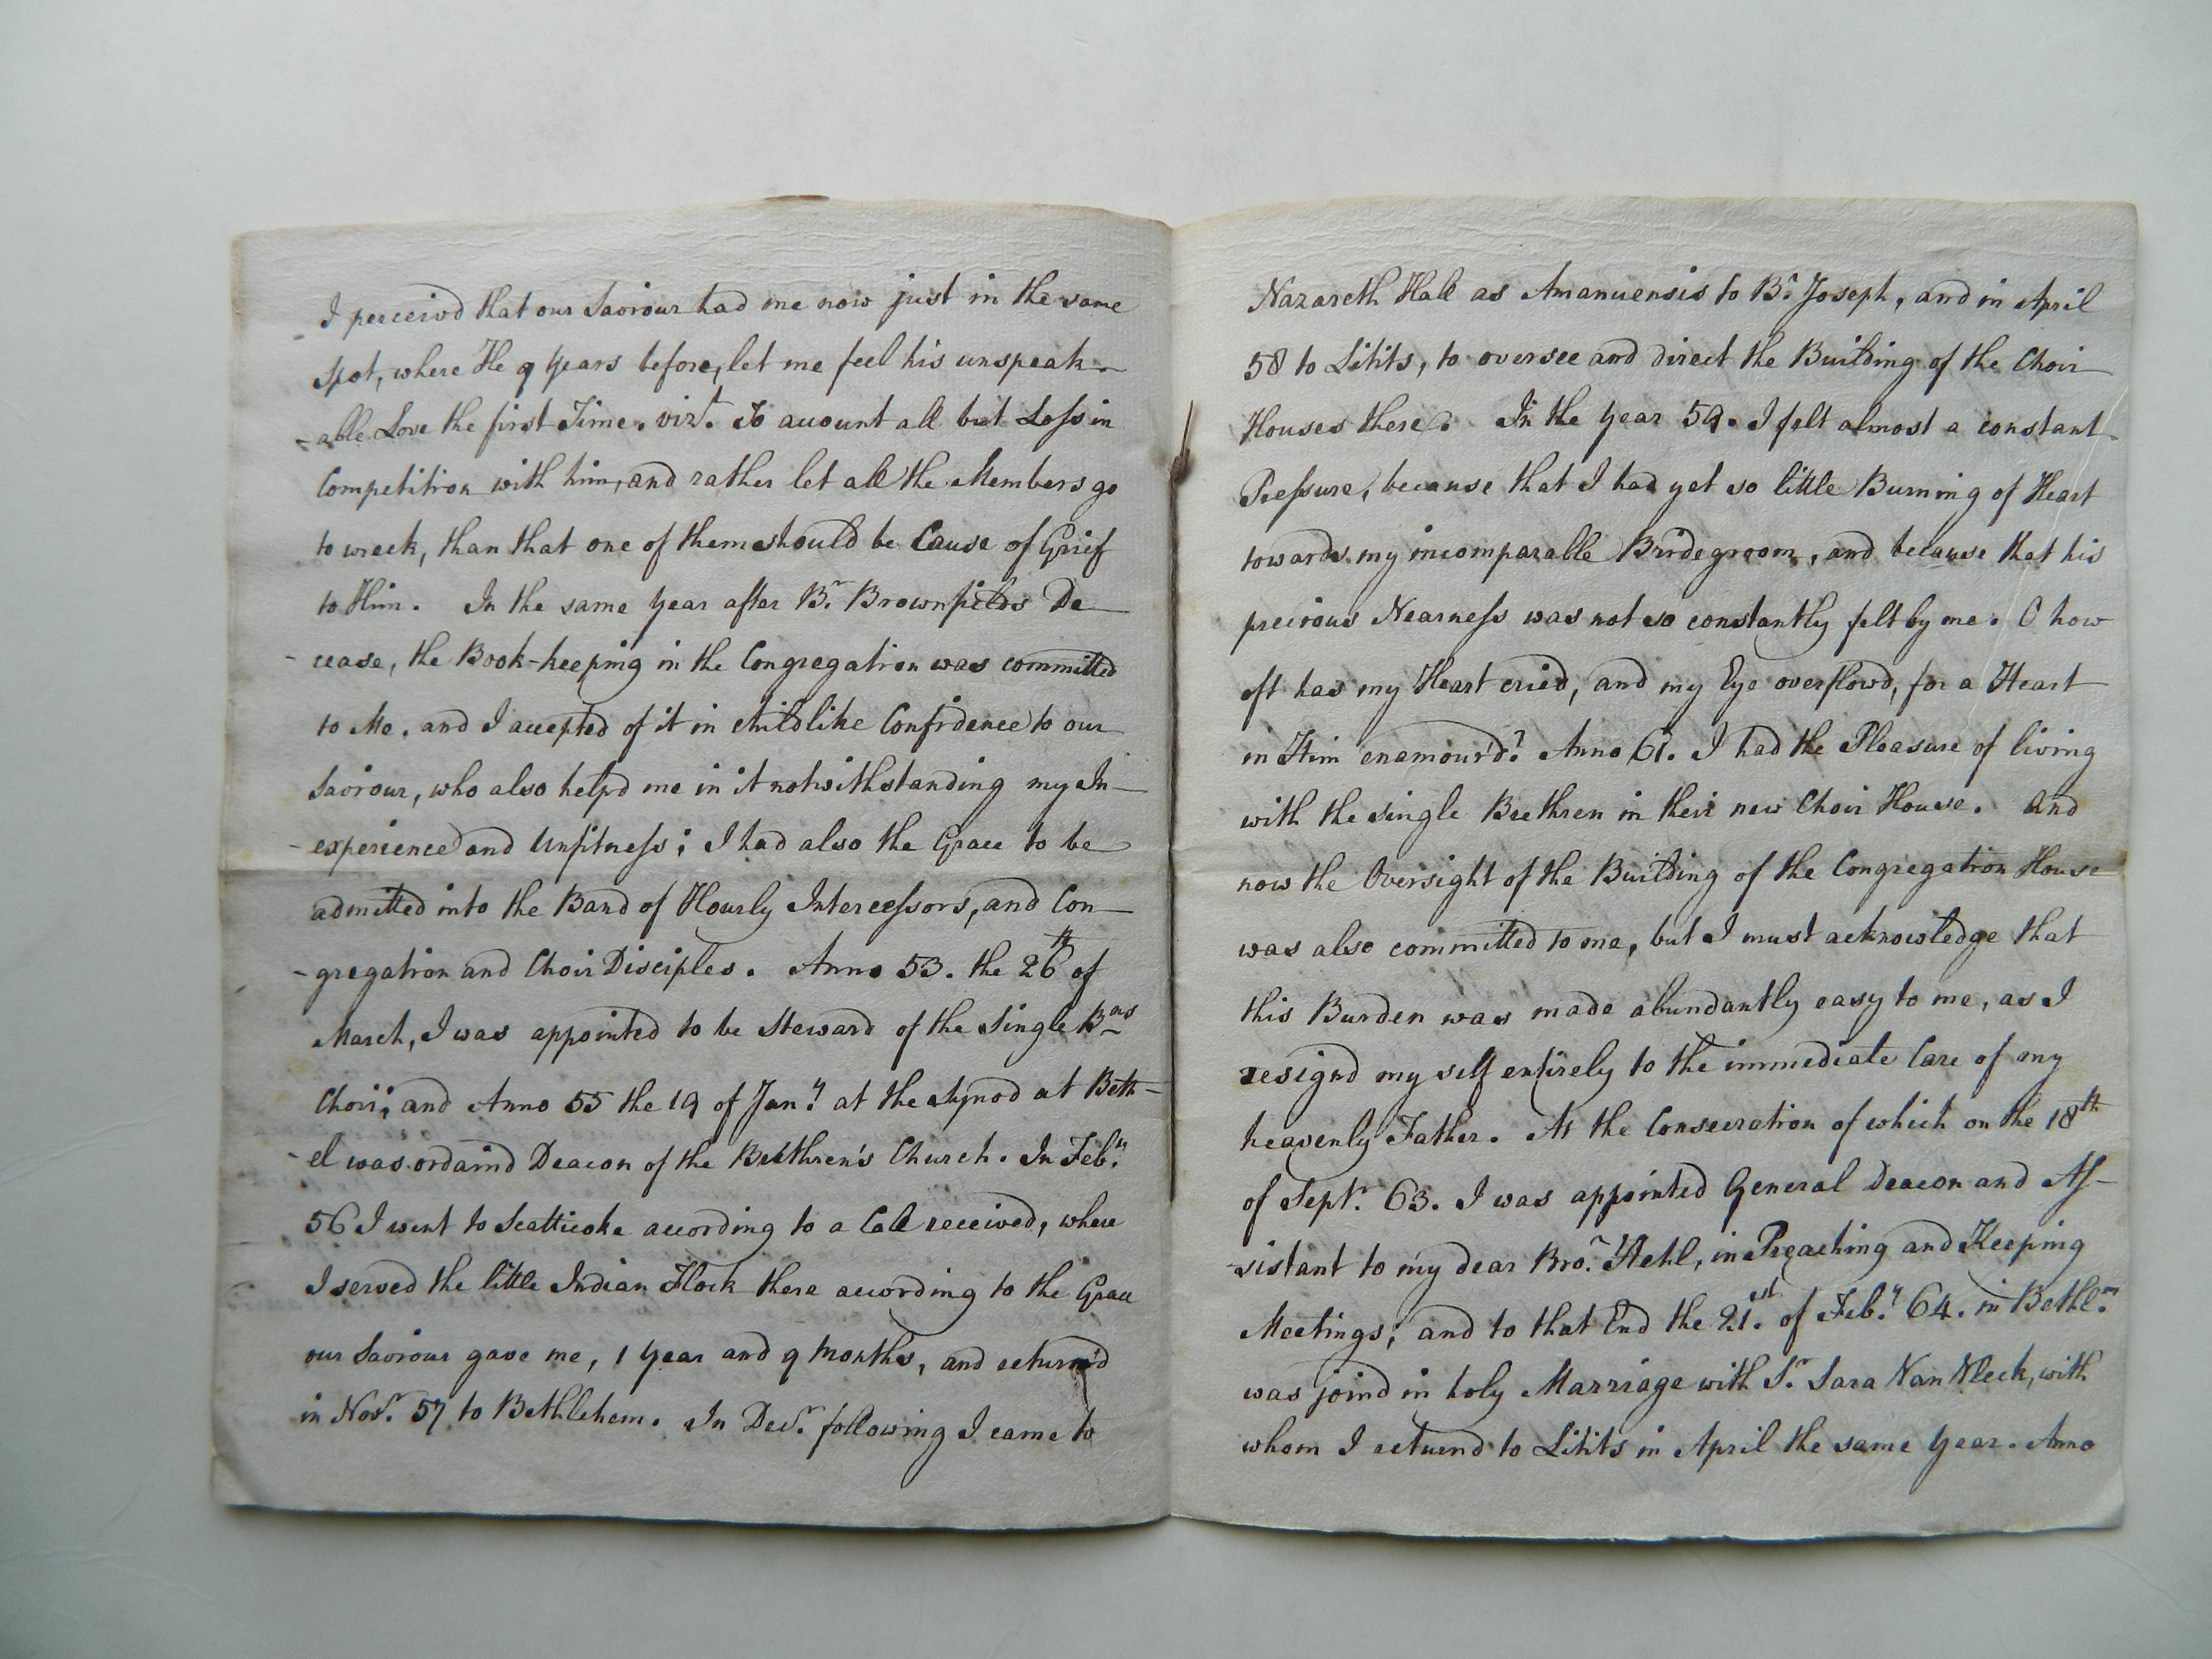 I perceivd that our Saviour had me now just in the same
Spot, where He 9 Years before, let me feel his unspeak-
-able Love the first Time. vizt. To account all but Loss in
Competition with him, and rather let all the Members go
to wreck, than that one of them should be Cause of Grief
to Him. In the same Year after Br. Brownfields De-
cease, the Book-keeping in the Congregation was committed
to Me. and I accepted of it in childlike Confidence to our
Saviour, who also helpd me in it notwithstanding my In-
-experience and Unfitness; I had also the Grace to be
admitted into the Band of Hourly Intercessors, and Con-
-gregation and Choir Disciples. Anno 53. the 26th of
March, I was appointed to be Steward of the Single Brns
Choir; and Anno 55 the 19 of Jany. at the Synod at Beth-
-el was ordaind Deacon of the Brethren's Church. In Feby.
56 I went to Scatticoke according to a Call received, where
I served the little Indian Flock there according to the Grace
our Saviour gave me, 1 Year and 9 Months, and return'd
in Novr. 57 to Bethlehem. In Decr. following I came to
Nazareth Hall as Amanuensis to Br. Joseph, and in April
58 to Lititz, to oversee and direct the Building of the Choir
Houses there. In the Year 59. I felt almost a constant
Pressure, because that I had yet so little Burning of Heart
towards my incomparable Bridegroom, and because that his
precious Nearness was not so constantly felt by me. O how
oft has my Heart cried, and my Eye overflowd, for a Heart
in Him enamour'd? Anno 61. I had the Pleasure of living
with the single Brethren in their new Choir House. And
now the Oversight of the Building of the Congregation House
was also committed to me, but I must acknowledge that
this Burden was made abundantly easy to me, as I
resignd my self entirely to the immediate Care of my
heavenly Father. At the Consecration of which on the 18th
of Septr. 63. I was appointed General Deacon and As-
-sistant to my dear Bror. Hehl, in Preaching and Keeping
Meetings; and to that End the 21st. of Feby. 64. in Bethlm.
was joind in holy Marriage with Sr. Sara Van Vleck, with
whom I returnd to Lititz in April the same Year. Anno